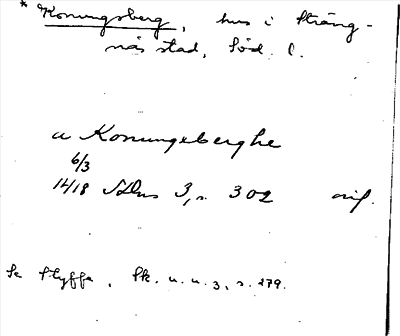 * Konungsberg, hus i Sträng-
näs stad, Söd. l.
a Konungxberghe
6/3
1418 SDns 3, s. 302 orif.
Se Styffe, Sk. u. u. 3, s. 279.